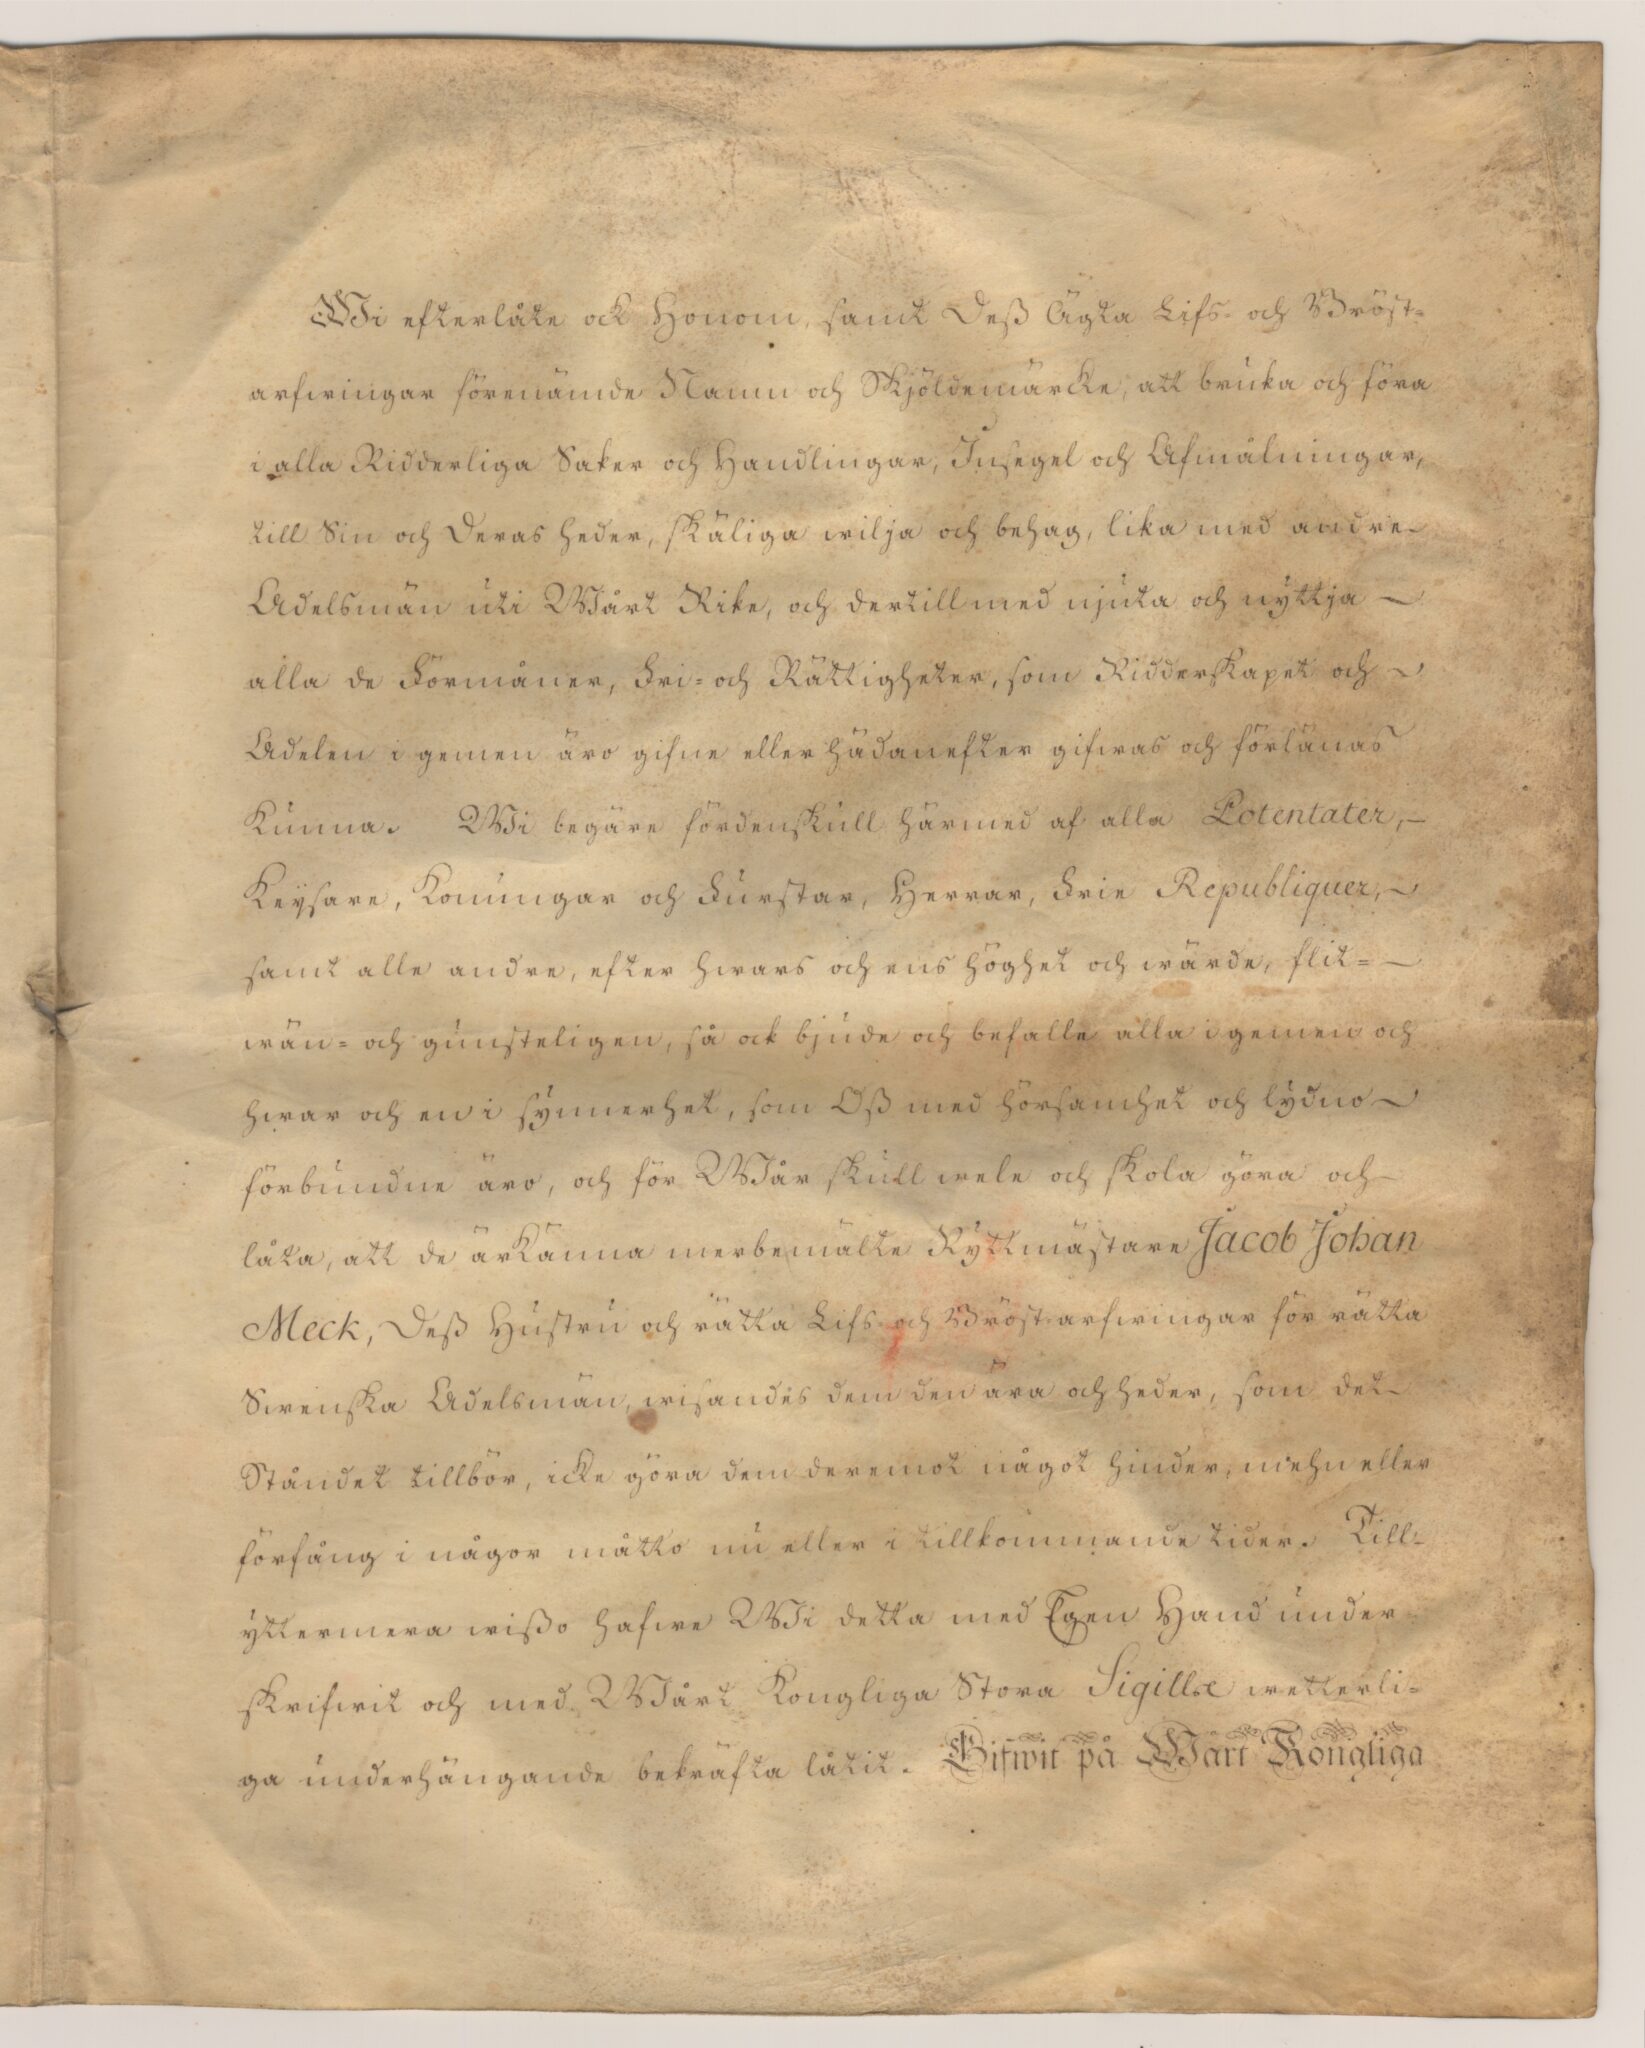 Wi efterlåte ock Honom, samt Deß Ägta Lifs- och Bröst-
arfwingar förenämde Namn och Skjöldemärcke, att bruka och föra
i alla Ridderliga Saker och Handlingar, Insegel och Afmålningar,
till Sin och Deras heder, skäliga wilja och behag, lika med andre
Adelsmän uti Wårt Rike, och dertill med njuta och nyttja
alla de Förmåner, Fri- och Rättigheter, som Ridderskapet och
Adelen i gemen äro gifne eller hädanefter gifwas och förlänas
Kunna. Wi begäre fördenskull härmed af alla Potentater,
Keysare, Konungar och Furstar, Herrar, Frie Republiquer,
samt alle andre, efter hwars och ens höghet och wärde, flit-
wän- och gunsteligen, så ock bjude och befalle alla i gemen och
hwar och en i synnerhet, som Oß med hörsamhet och lydno
förbundne äro, och för Wår skull wele och skola göra och
låta, att de ärkänna merbemälte Ryttmästare Jacob Johan
Meck, Deß Hustru och rätta Lifs- och Bröst-arfwingar för rätta
Swenska Adelsmän, wisandes dem den ära och heder, som det
Ståndet tillbör, icke göra dem deremot något hinder, mehn eller
förfång i någor måtto nu eller i tillkommande tider. Till
yttermera wißo hafwe Wi detta med Egen Hand under
skrifwit och med Wårt Kongliga Stora Sigill wetterli-
ga underhängande bekräfta låtit. Gifwit på Wårt Kongliga